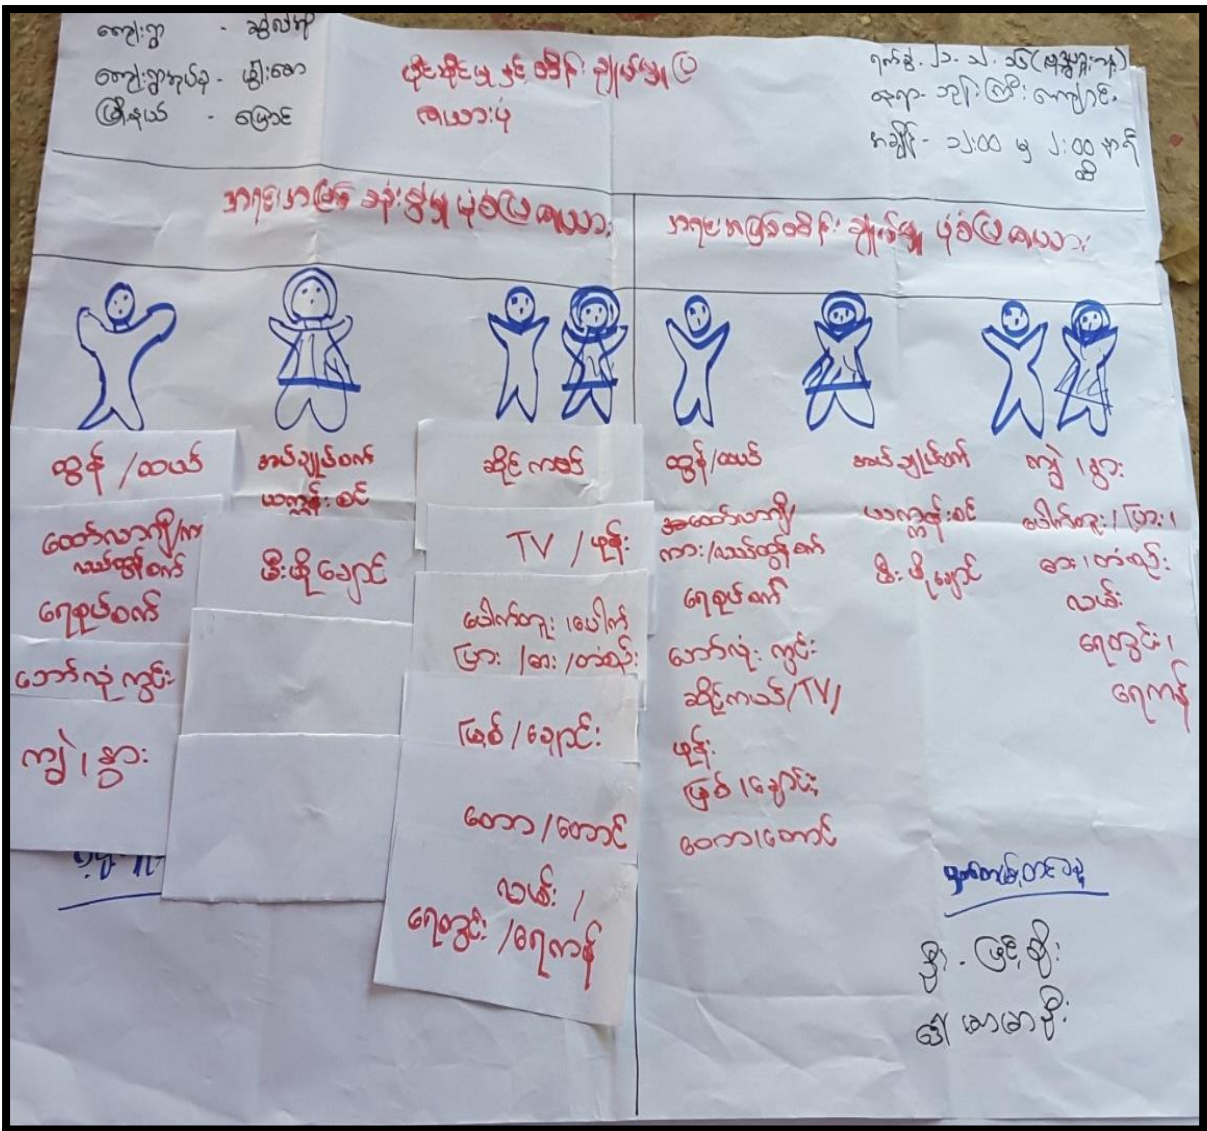 ကျေးရွာ -
ကျေးရွာအုပ်စု -
မြို့နယ် - မြောင်
ပိုင်ဆိုင်မှု နှင့် ထိန်းချုပ်မှုပြ
ဇယားပုံ
ရက်စွဲ -
နေရာ - ဘုန်းကြီးကျောင်း
အချိန် - ၁၂:၀၀ မှ ၂:၀၀ နာရီ
ထိ
အရင်းအမြစ် သုံးစွဲမှု ပုံစံပြဇယား
အရင်းအမြစ်ထိန်းချုပ်မှု ပုံစံပြဇယား
ထွန် / ထယ်
ထော်လာဂျီ/ကား
လယ်ထွန်စက်
ရေစုပ်စက်
ဘော်လုံးကွင်း
ကျွဲ ၊ နွား
အပ်ချုပ်စက်
ယက္ကန်းစင်
မီးဖိုချောင်
ဆိုင်ကယ်
TV / ဖုန်း
ပေါက်တူး ၊ ပေါက်
ပြား / ဓား / တံစဉ်း
မြစ် / ချောင်း
တော / တောင်
လမ်း /
ရေတွင်း / ရေကန်
ထွန်/ထယ်
ထော်လာဂျီ/
ကား/လယ်ထွန်စက်
ရေစုပ်စက်
ဘော်လုံးကွင်း
ဆိုင်ကယ်/TV/
ဖုန်း
မြစ် ၊ ချောင်း
တော ၊ တောင်
အပ်ချုပ်စက်
ယက္ကန်းစင်
မီးဖိုချောင်
ကျွဲ ၊ နွား
ပေါက်တူး ၊ ပြား ၊
ဓား ၊ တံစဉ်း
လမ်း
ရေတွင်း ၊
ရေကန်
မှတ်တမ်းတင်သူ